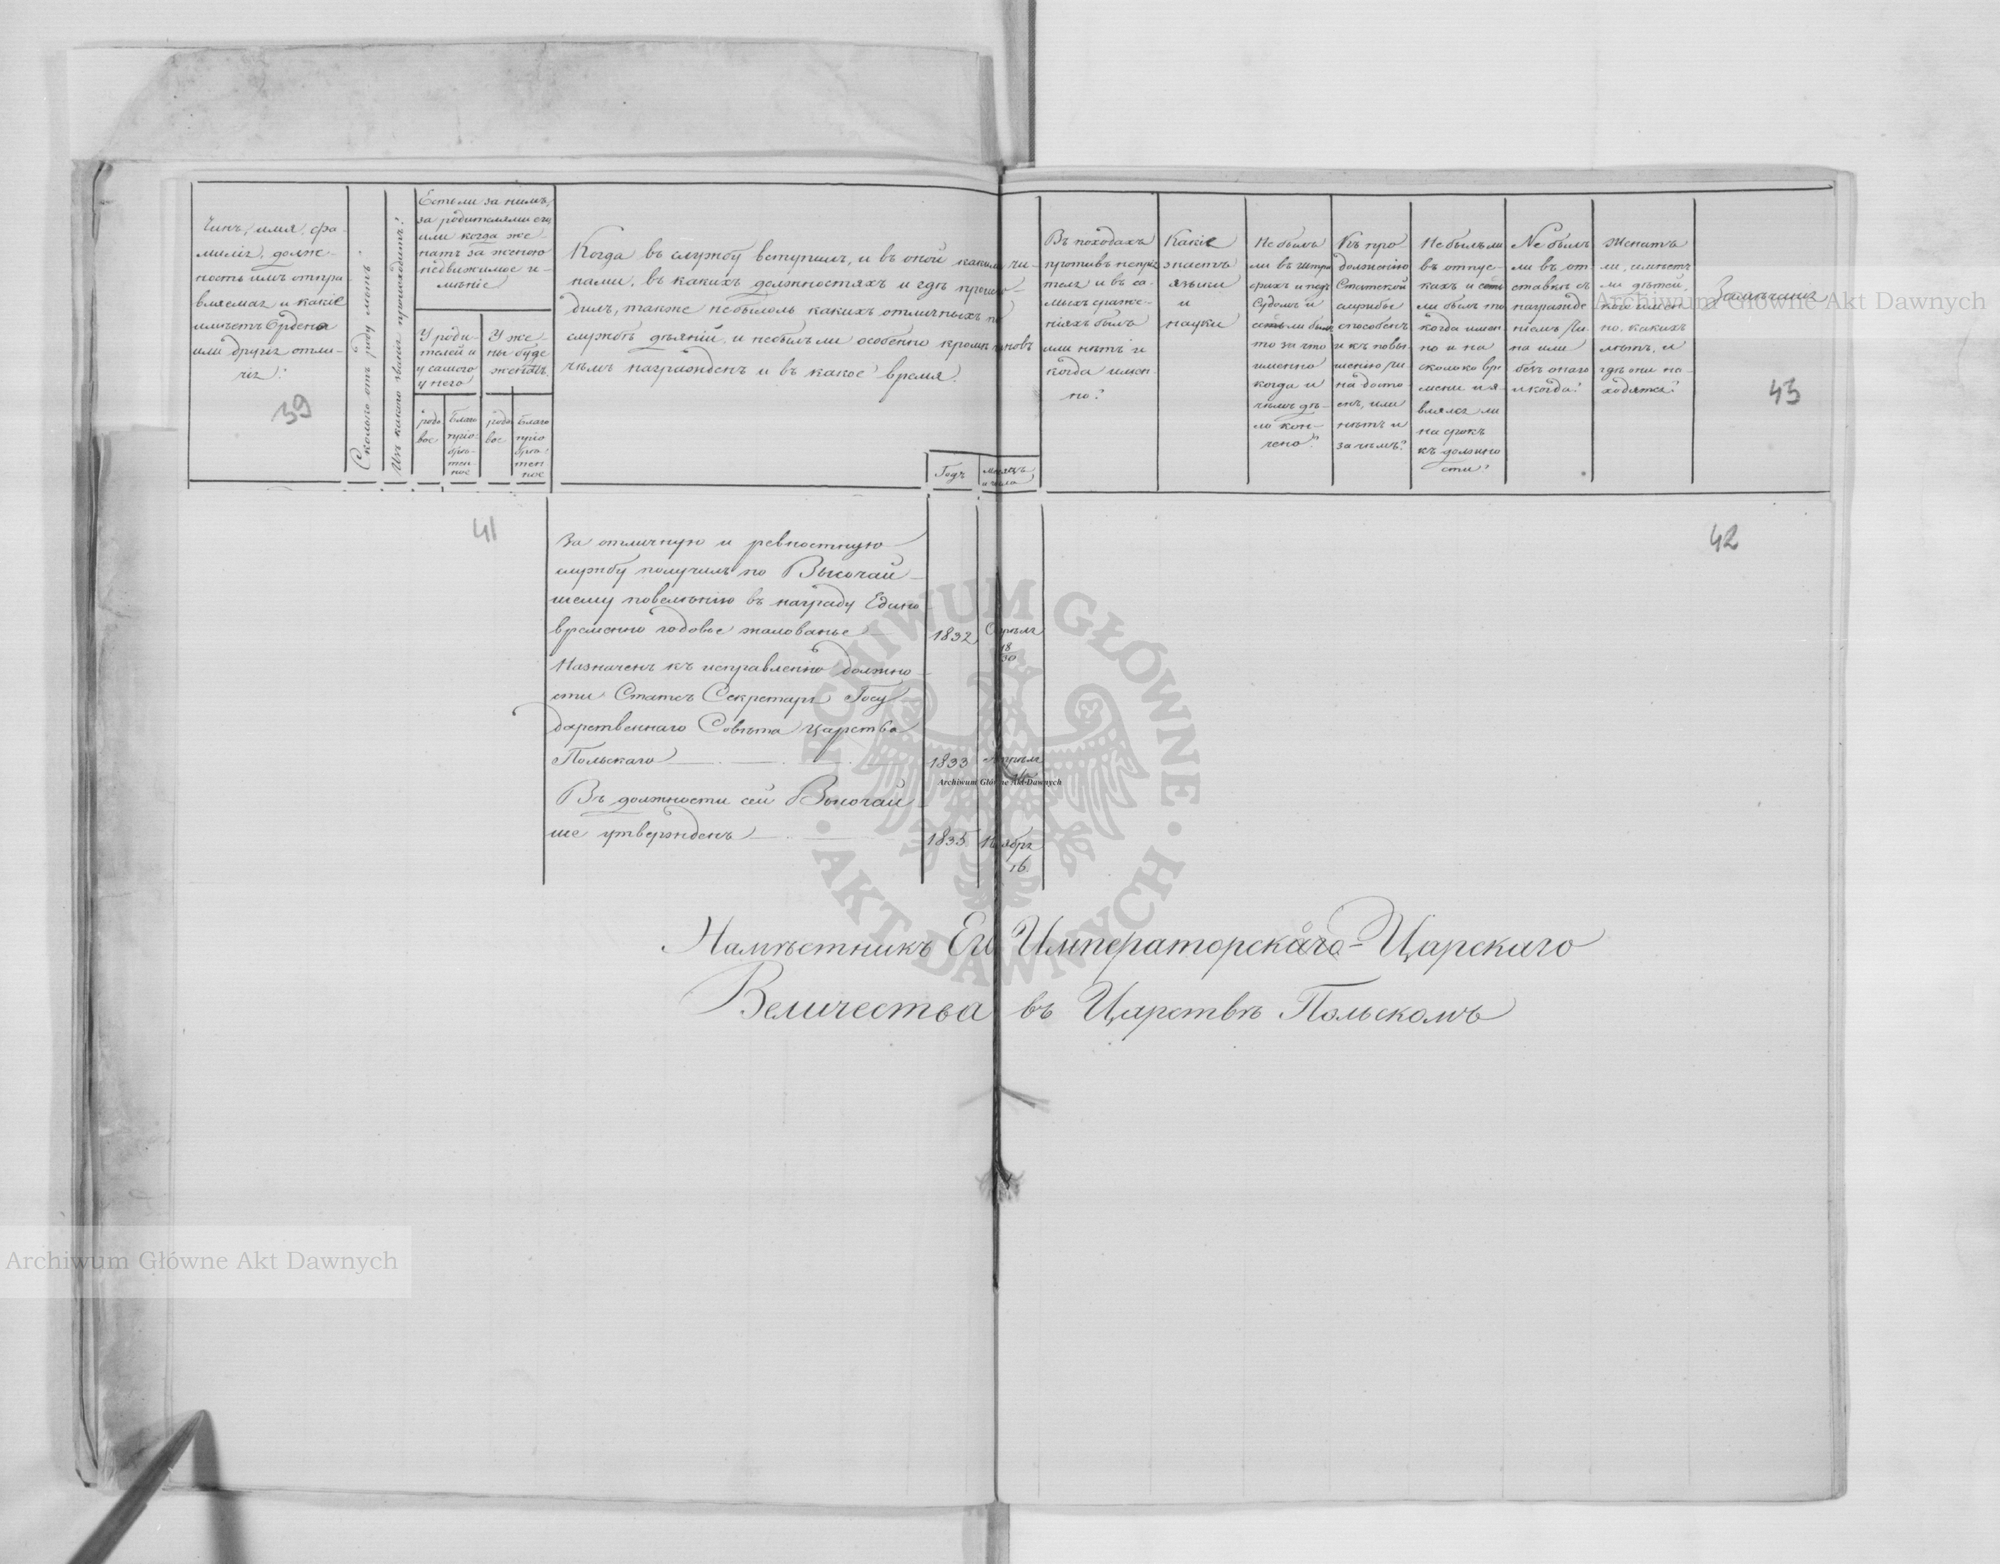 Чинъ, имя, фа-
милія, долж-
ность имъ отпра
вляемая и какіе
имѣетъ Ордена
или другія отли-
чія?
39
Сколько отъ роду лѣтъ?
Изъ какого званія происходитъ?
Есть ли за нимъ,
за родителями его
или когда же
натъ за женою
недвижимое и-
мѣніе
У роди-
телей и
у самого
у него
У же-
ны буде
женатъ
родо
вое
благо
пріо-
брѣ-
тен-
ное
родо
вое
благо
пріо
брѣ-
тен
ное
Когда въ службу вступилъ, и въ оной какими чи-
нами, въ какихъ должностяхъ и гдѣ происхо-
дилъ, также не было ль какихъ отличныхъ по
службѣ дѣяній, и не былъ ли особенно кромѣ чиновъ
чѣмъ награжденъ и въ какое время.
Годъ
мѣсяцъ
и числа
Въ походахъ
противъ непрія
теля и въ са-
мыхъ сраже-
ніяхъ былъ
или нѣтъ и
когда имен-
но?
Какіе
знаетъ
языки
и
науки
Не былъ
ли въ штра
фахъ и подъ
судомъ и
если былъ
то за что
именно
когда и
чѣмъ дѣ-
ло кон-
чено?
Къ про
долженію
Статской
службы
способенъ
и къ повы
шенію чи
на досто-
енъ, или
нѣтъ и
за чѣмъ?
Не былъ ли
въ отпус-
кахъ и если
былъ то
когда имен
но и на
сколько вре
мени и я-
влялся ли
на срокъ
къ должно
сти?
Не былъ
ли въ от
ставкѣ съ
награжде
ніемъ чи
на или
безъ онаго
и когда?
Женатъ
ли, имѣетъ
ли дѣтей,
кого имен
но, какихъ
лѣтъ, и
гдѣ они на-
ходятся?
Замѣчанія
43
41
42
За отличную и ревностную
службу получилъ по Высочай
шему повелѣнію въ награду Едино
временно годовое жалованье 1832 Апрѣля 18/30
Назначенъ къ исправленію должно
сти Статсъ Секретаря Госу
дарственнаго Совѣта Царства
Польскаго 1833 Апрѣля
Въ должности сей Высочай
ше утвержденъ 1835 Ноября
16
Намѣстникъ Его Императорскаго-Царскаго
Величества въ Царствѣ Польскомъ
ARCHIWUM GŁÓWNE
AKT DAWNYCH
Archiwum Główne Akt Dawnych
Archiwum Główne Akt Dawnych
Archiwum Główne Akt Dawnych